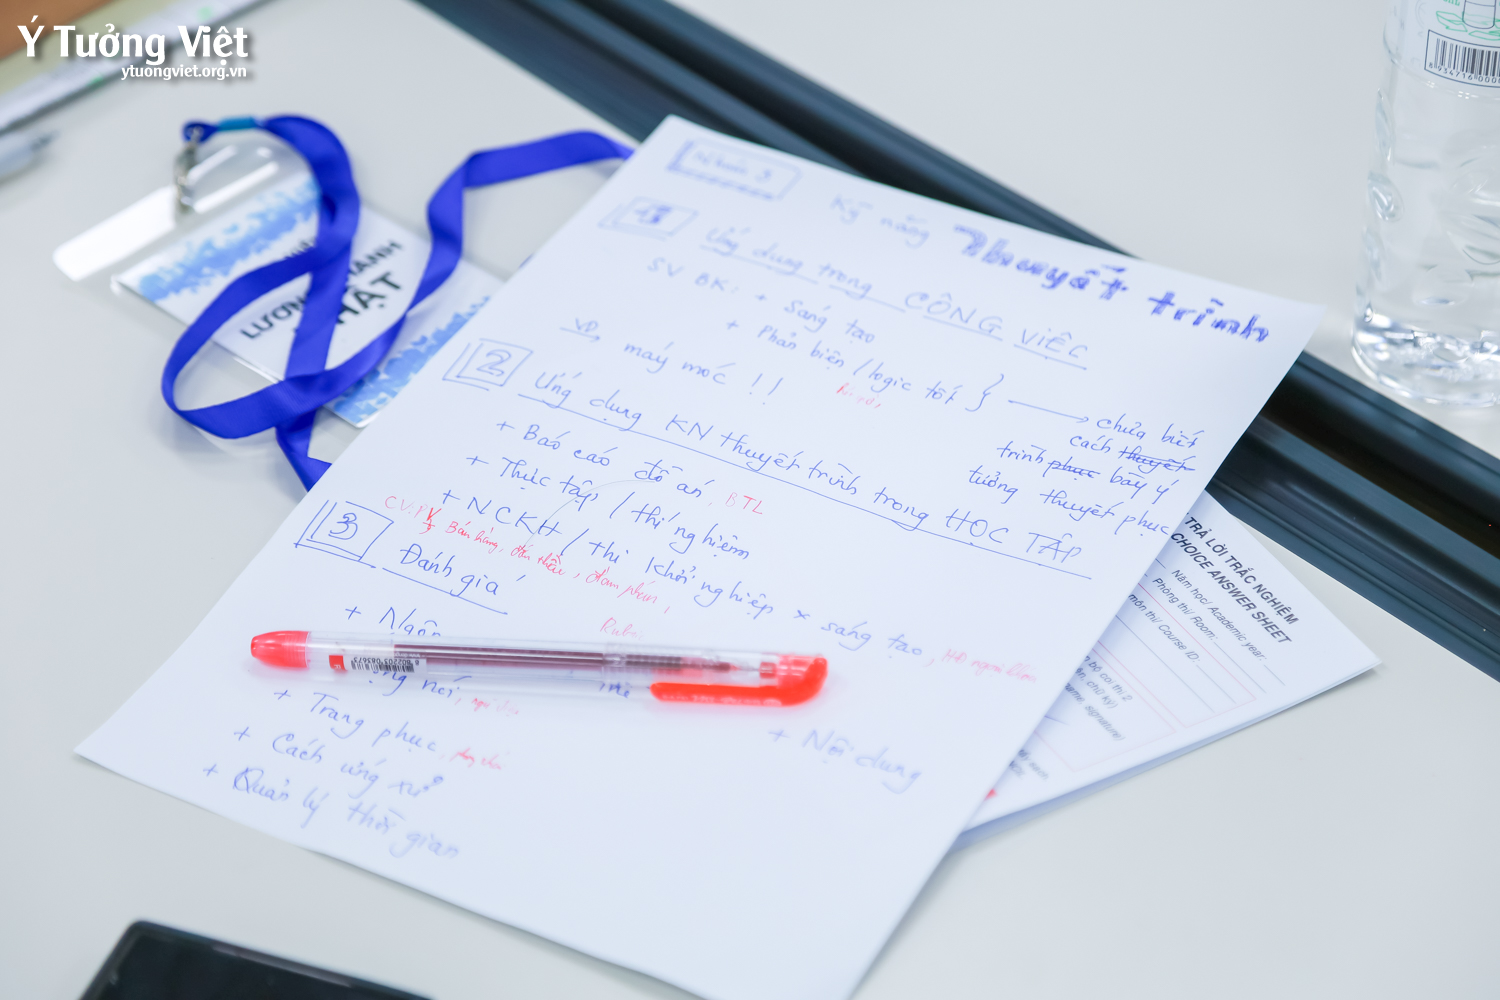 Ý Tưởng Việt
ytuongviet.org.vn
LƯƠN
ANH
ẬT
Nhóm 3
Kỹ năng Thuyết trình
1 Ứng dụng trong CÔNG VIỆC
SV BK: + Sáng tạo
+ Phản biện / logic tốt } → chưa biết
cách thuyết
trình phục bày ý
tưởng thuyết phục
VD máy móc !!
2 Ứng dụng KN thuyết trình trong HỌC TẬP
+ Báo cáo đồ án, BTL
+ Thực tập / thí nghiệm
+ NCKH / thi khởi nghiệp × sáng tạo,
CV: PV
Bán hàng, đấu thầu, đàm phán,
3 Đánh giá
+ Ngôn
nói,
+ Trang phục,
+ Cách ứng xử
+ Quản lý thời gian
+ Nội dung
8 802203 083673
TRẢ LỜI TRẮC NGHIỆM
CHOICE ANSWER SHEET
Năm học/ Academic year:
Phòng thi/ Room:
môn thi/ Course ID:
bộ coi thi 2
ên, chữ ký)
ame, signature)
8 934716 000